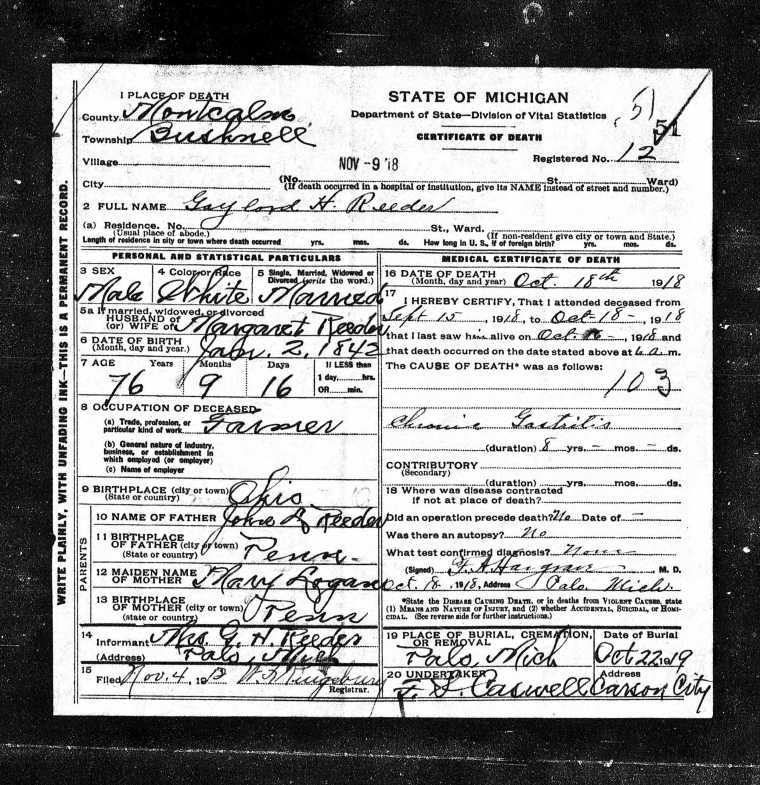 1 PLACE OF DEATH
County Montcalm
Township Bushnell
Village
City
STATE OF MICHIGAN
Department of State—Division of Vital Statistics
CERTIFICATE OF DEATH
51
51
NOV -9 '18
Registered No. 12
(No. St. Ward)
(If death occurred in a hospital or institution, give its NAME instead of street and number.)
2 FULL NAME Gaylord H. Reeder
(a) Residence. No. St., Ward.
(Usual place of abode.) (If non-resident give city or town and State.)
Length of residence in city or town where death occurred yrs. mos. ds. How long in U. S., if of foreign birth? yrs. mos. ds.
PERSONAL AND STATISTICAL PARTICULARS
3 SEX 4 Color or Race 5 Single, Married, Widowed or Divorced (write the word.)
Male White Married
5a If married, widowed, or divorced
HUSBAND of
(or) WIFE of Margaret Reeder
6 DATE OF BIRTH
(Month, day and year.) Jan. 2, 1842
7 AGE Years Months Days If LESS than
1 day, hrs.
OR min.
76 9 16
8 OCCUPATION OF DECEASED
(a) Trade, profession, or
particular kind of work Farmer
(b) General nature of industry,
business, or establishment in
which employed (or employer)
(c) Name of employer
9 BIRTHPLACE (city or town)
(State or country) Ohio
PARENTS
10 NAME OF FATHER John Reeder
11 BIRTHPLACE
OF FATHER (city or town)
(State or country) Penn
12 MAIDEN NAME
OF MOTHER Mary Logan
13 BIRTHPLACE
OF MOTHER (city or town)
(state or country) Penn
14
Informant Mrs. G. H. Reeder
(Address) Palo, Mich
15
Filed Nov. 4, 19 Kingsbury
Registrar.
MEDICAL CERTIFICATE OF DEATH
16 DATE OF DEATH
(Month, day and year) Oct. 18th 1918
17
I HEREBY CERTIFY, That I attended deceased from
Sept 15, 1918, to Oct-18-, 1918
that I last saw him alive on Oct. , 1918 and
that death occurred on the date stated above at 6 a.m.
The CAUSE OF DEATH* was as follows:
103
Chronic Gastritis
(duration) 8 yrs. - mos. - ds.
CONTRIBUTORY
(Secondary)
(duration) yrs. mos. ds.
18 Where was disease contracted
if not at place of death?
Did an operation precede death? No Date of -
Was there an autopsy? No
What test confirmed diagnosis? None
(Signed) F. A. Hargrave M. D.
Oct. 18, 1918, Address Palo Mich.
*State the DISEASE CAUSING DEATH, or in deaths from VIOLENT CAUSES, state
(1) MEANS AND NATURE OF INJURY, and (2) whether ACCIDENTAL, SUICIDAL, OR HOMI-
CIDAL. (See reverse side for further instructions.)
19 PLACE OF BURIAL, CREMATION, OR REMOVAL Date of Burial
Palo, Mich Oct 22 1919
20 UNDERTAKER Address
F. L. Caswell Carson City
WRITE PLAINLY, WITH UNFADING INK—THIS IS A PERMANENT RECORD.